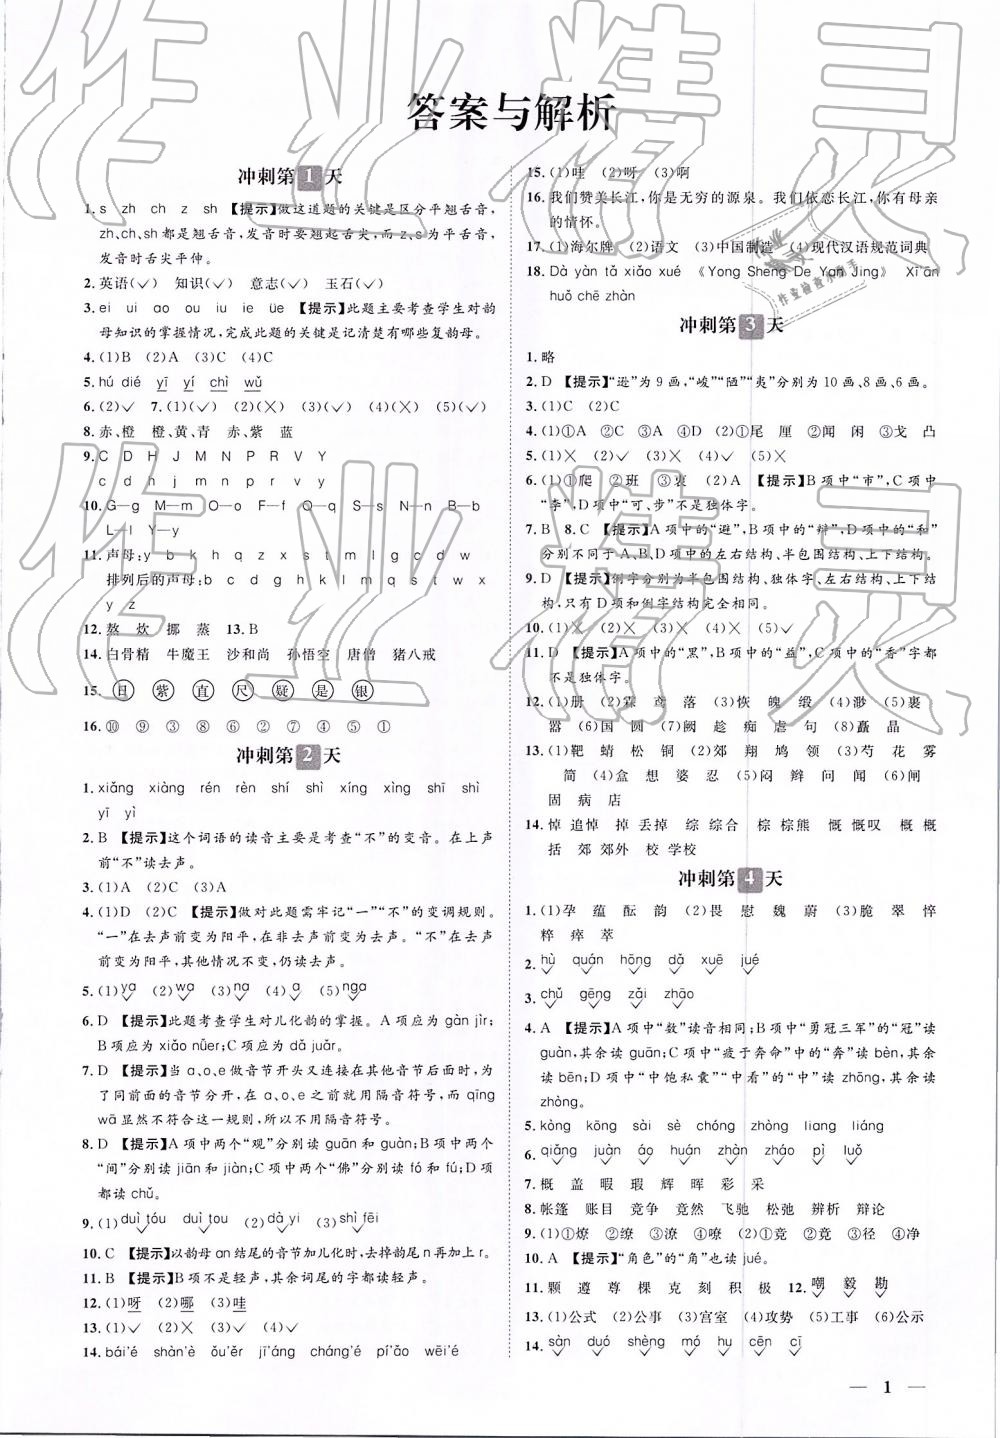 答案与解析
冲刺第1天
1. s zh ch z sh【提示】做这道题的关键是区分平翘舌音，
zh、ch、sh都是翘舌音，发音时要翘起舌尖，而z、s为平舌音，
发音时舌尖平伸。
2. 英语(✓) 知识(✓) 意志(✓) 玉石(✓)
3. ei ui ao ou iu ie üe【提示】此题主要考查学生对韵
母知识的掌握情况，完成此题的关键是记清楚有哪些复韵母。
4. (1)B (2)A (3)C (4)B
5. hú dié yī yí chì wǔ
6. (2)✓ 7. (1)(✓) (2)(✕) (3)(✓) (4)(✕) (5)(✓)
8. 赤、橙 橙、黄、青 赤、紫 蓝
9. C D H J M N R V Y
c d h j m n r v y
10. G—g M—m O—o F—f Q—q S—s N—n B—b
L—l Y—y
11. 声母：y f b k h q z x s t g l c d w
排列后的声母：b c d f g h k l q s t w x
y z
12. 熬 炊 挪 蒸 13. B
14. 白骨精 牛魔王 沙和尚 孙悟空 唐僧 猪八戒
15. 日 紫 直 尺 疑 是 银
16. ⑩ ⑨ ③ ⑧ ⑥ ② ⑦ ④ ⑤ ①
冲刺第2天
1. xiǎng xiàng rén rèn shí shì xíng xìng shī shì
yī yì
2. B【提示】这个词语的读音主要是考查“不”的变音。在上声
前“不”读去声。
3. (1)A (2)C (3)A
4. (1)D (2)C【提示】做对此题需牢记“一”“不”的变调规则。
“一”在去声前变为阳平，在非去声前变为去声。“不”在去声
前变为阳平，其他情况不变，仍读去声。
5. (1)ya (2)wa (3)na (4)a (5)nga
6. D【提示】此题考查学生对儿化韵的掌握。A项应为gàn jìr；
B项应为xiǎo nǚer；C项应为dǎ juǎr。
7. D【提示】当a、o、e做音节开头又连接在其他音节后面时，为
了同前面的音节分开，在a、o、e之前就用隔音符号，而qīng
wā显然不符合这一规则，所以不用隔音符号。
8. D【提示】A项中两个“观”分别读guān和guàn；B项中两个
“间”分别读jiān和jiàn；C项中两个“佛”分别读fó和fú；D项
都读chǔ。
9. (1)duì tóu duì tou (2)dà yi (3)shì fēi
10. C【提示】以韵母an结尾的音节加儿化时，去掉韵尾n再加上r。
11. B【提示】B项不是轻声，其余词尾的字都读轻声。
12. (1)呀 (2)哪 (3)哇
13. (1)✓ (2)✕ (3)✓ (4)✓
14. bái'é shàn'è ǒu'ěr jī'áng cháng'é pí'ǎo wēi'é
15. (1)哇 (2)呀 (3)啊
16. 我们赞美长江，你是无穷的源泉。我们依恋长江，你有母亲
的情怀。
17. (1)海尔牌 (2)语文 (3)中国制造 (4)现代汉语规范词典
18. Dà yàn tǎ xiǎo xué 《Yong Sheng De Yan Jing》 Xī'ān
huǒ chē zhàn
冲刺第3天
1. 略
2. D【提示】“逊”为9画，“峻”“陋”“夷”分别为10画、8画、6画。
3. (1)C (2)C
4. (1)①A ②C ③A ④D (2)①尾 厘 ②闻 闲 ③戈 凸
5. (1)✕ (2)✓ (3)✓ (4)✓ (5)✕
6. (1)①爬 ②班 ③衷 (2)A【提示】B项中“市”，C项中
“李”，D项中“可、步”不是独体字。
7. B 8. C【提示】A项中的“避”，B项中的“辩”，D项中的“和”
分别不同于A、B、D项中的左右结构、半包围结构、上下结构。
9. D【提示】例字分别为半包围结构、独体字、左右结构、上下结
构，只有D项和例字结构完全相同。
10. (1)✕ (2)✕ (3)✓ (4)✕ (5)✓
11. D【提示】A项中的“黑”，B项中的“益”，C项中的“香”字都
不是独体字。
12. (1)册 (2)霖 鸢 落 (3)恢 魄 缎 (4)渺 (5)裹
器 (6)国 圆 (7)阙 趁 痴 虐 句 (8)矗 晶
13. (1)靶 蜻 松 铜 (2)郊 翔 鸠 领 (3)芍 花 雾
简 (4)盒 想 婆 忍 (5)闷 辫 问 闻 (6)闸
固 病 店
14. 悼 追悼 掉 丢掉 综 综合 棕 棕熊 慨 慨叹 概 概
括 郊 郊外 校 学校
冲刺第4天
1. (1)孕 蕴 酝 韵 (2)畏 慰 魏 蔚 (3)脆 翠 悴
粹 瘁 萃
2. hù quán hōng dǎ xuě jué
3. chǔ gēng zǎi zhāo
4. A【提示】A项中“数”读音相同；B项中“勇冠三军”的“冠”读
guàn，其余读guān；C项中“疲于奔命”中的“奔”读bèn，其余
读bēn；D项中“中饱私囊”“中看”的“中”读zhōng，其余读
zhòng。
5. kòng kōng sài sè chóng zhòng liang liáng
6. qiǎng juàn áo huán zhàn zháo pì luǒ
7. 概 盖 暇 瑕 辉 晖 彩 采
8. 帐篷 账目 竞争 竟然 飞驰 松弛 辨析 辩论
9. (1)①燎 ②缭 ③潦 ④嘹 (2)①竟 ②竞 ③径 ④净
10. A【提示】“角色”的“角”也读jué。
11. 颗 遵 尊 棵 克 刻 积 极 12. 嘲 毅 勘
13. (1)公式 (2)公事 (3)宫室 (4)攻势 (5)工事 (6)公示
14. sàn duó shèng mó hu cēn cī
— 1 —